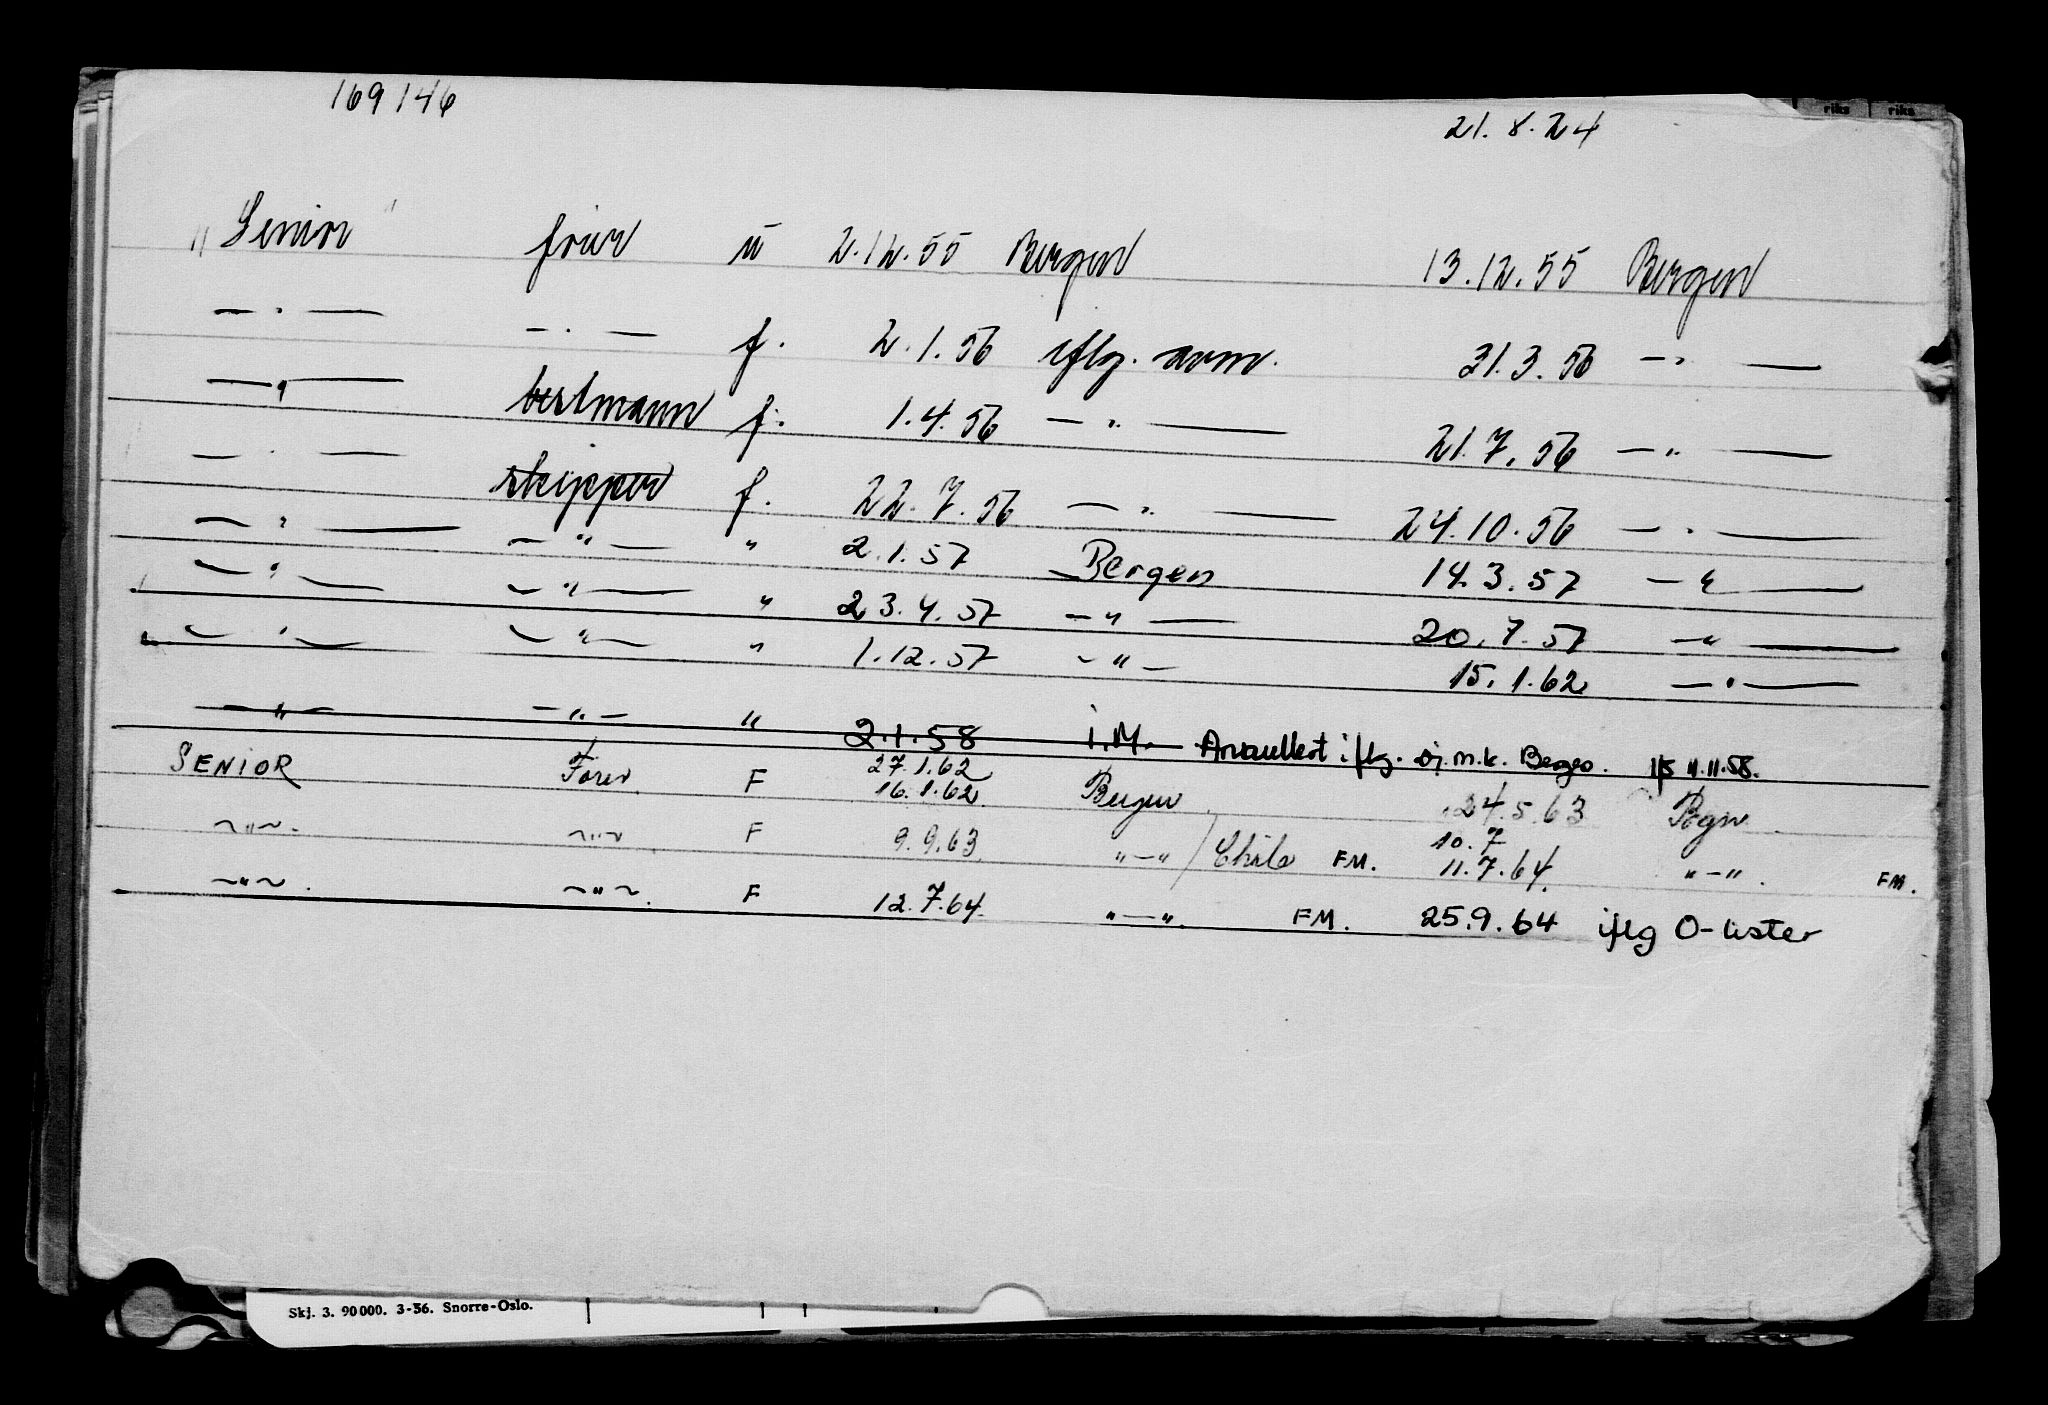 169146 21.8.24
riks riks
"Senior" fører u 2.12.55 Bergen 13.12.55 Bergen
— " — — " — f. 2.1.56 iflg. avm. 31.3.56 — " —
— " — bestmann f. 1.4.56 — " — 21.7.56 — " —
— " — skipper f. 22.7.56 — " — 24.10.56 — " —
— " — — " — " 2.1.57 Bergen 14.3.57 — " —
— " — — " — " 23.4.57 — " — 20.7.57 — " —
— " — — " — " 1.12.57 — " — 15.1.62 — " —
— " — — " — " 2.1.58 i.M. Annullert iflg. sj.m.k. Bergen. 11.11.58.
27.1.62
SENIOR Fører F 16.1.62 Bergen 24.5.63 Bgn
10.7
~ " ~. ~ " ~ F 9.9.63 " — " / Chile FM. 11.7.64. " — ". FM.
~ " ~. ~ " ~. F 12.7.64. " — ". FM. 25.9.64 iflg O-lister
Skj. 3. 90000. 3-56. Snorre-Oslo.